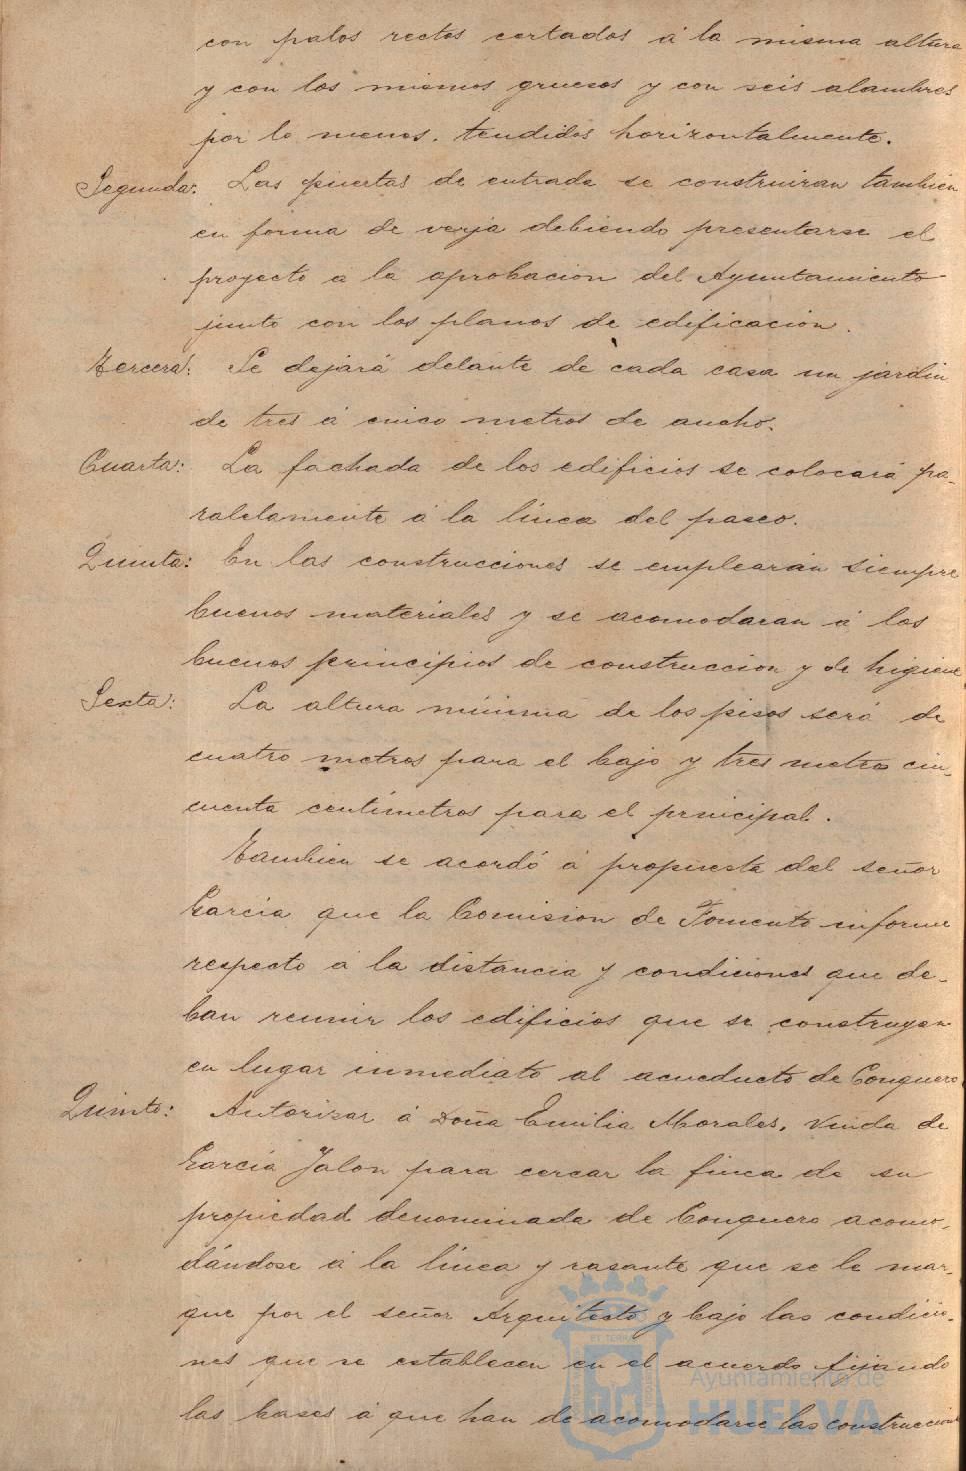 con palos rectos cortados á la misma altura
y con los mismos gruesos y con seis alambres
por lo menos, tendidos horizontalmente.
Segunda: Las puertas de entrada se construiran tambien
en forma de verja debiendo presentarse el
proyecto á la aprobacion del Ayuntamiento
junto con los planos de edificacion.
Tercera: Se dejará delante de cada casa un jardin
de tres á cinco metros de ancho.
Cuarta: La fachada de los edificios se colocará pa-
ralelamente á la linea del paseo.
Quinta: En las construcciones se emplearán siempre
buenos materiales y se acomodaran á los
buenos principios de construccion y de higiene
Sexta: La altura mínima de los pisos será de
cuatro metros para el bajo y tres metros cin-
cuenta centímetros para el principal.
Tambien se acordó á propuesta del señor
Garcia que la Comision de Fomento informe
respecto á la distancia y condiciones que de-
ban reunir los edificios que se construyan
en lugar inmediato al acueducto de Conquero
Quinto: Autorizar á Doña Emilia Morales, Viuda de
García Jalon para cercar la finca de su
propiedad denominada de Conquero acomo-
dándose á la línea y rasante que se le mar-
que por el señor Arquitecto y bajo las condicio-
nes que se establecen en el acuerdo fijando
las bases á que han de acomodarse las construcciones
Ayuntamiento de
HUELVA